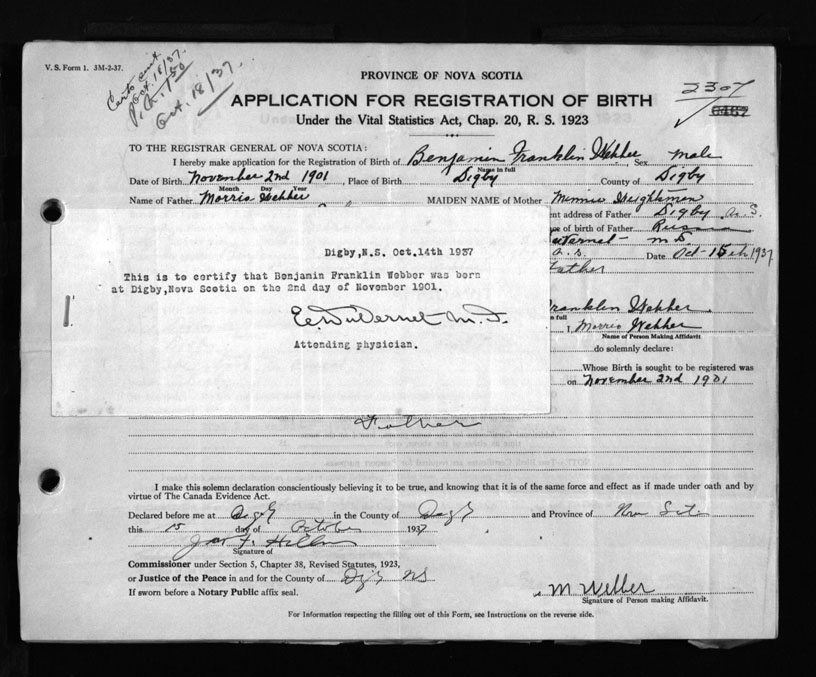 V. S. Form 1. 3M-2-37.
Oct. 18/37.
Oct. 18/37.
PROVINCE OF NOVA SCOTIA
2307
APPLICATION FOR REGISTRATION OF BIRTH
Under the Vital Statistics Act, Chap. 20, R. S. 1923
TO THE REGISTRAR GENERAL OF NOVA SCOTIA:
I hereby make application for the Registration of Birth of Benjamin Franklin Webber Sex male
Name in full
Date of Birth November 2nd 1901, Place of Birth Digby County of Digby
Month Day Year
Name of Father Morris Webber MAIDEN NAME of Mother Minnie
nt address of Father Digby N.S.
ce of birth of Father Russia
M.D.
Date Oct-15th 1937
Father
Digby,N.S. Oct.14th 1937
This is to certify that Benjamin Franklin Webber was born
at Digby,Nova Scotia on the 2nd day of November 1901.
E. DuVernet M.D.
Attending physician.
Franklin Webber.
n full
I, Morris Webber
Name of Person Making Affidavit
do solemnly declare:
Whose Birth is sought to be registered was
on November 2nd 1901
Father
I make this solemn declaration conscientiously believing it to be true, and knowing that it is of the same force and effect as if made under oath and by
virtue of The Canada Evidence Act.
Declared before me at Digby in the County of Digby and Province of Nova Scotia
this 15 day of October 1937
Signature of
Commissioner under Section 5, Chapter 38, Revised Statutes, 1923,
or Justice of the Peace in and for the County of Digby NS
If sworn before a Notary Public affix seal.
M Webber
Signature of Person making Affidavit.
For Information respecting the filling out of this Form, see Instructions on the reverse side.